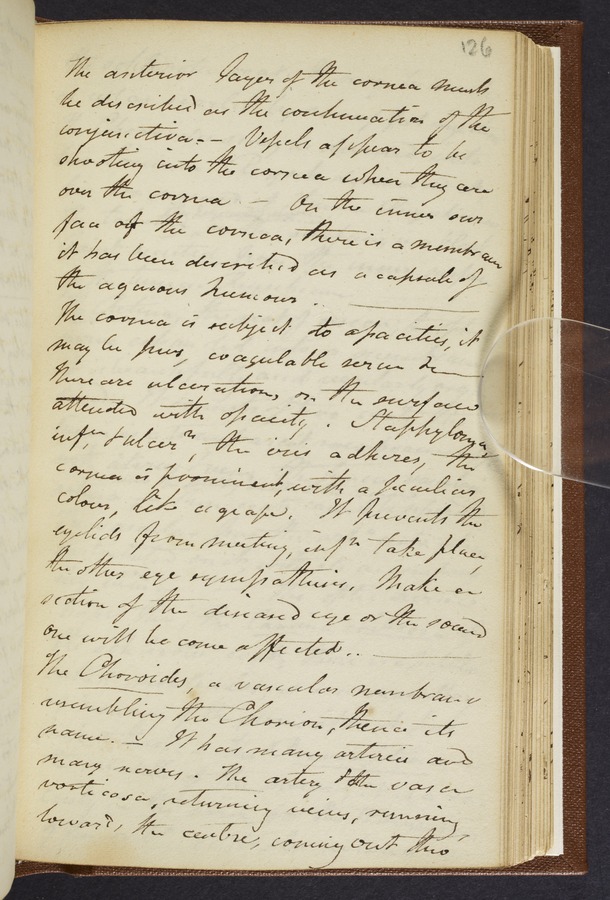 126
The anterior layer of the cornea must
be described as the continuation of the
conjunctiva. - Vessels appear to be
shooting into the cornea when they are
over the cornea - On the inner sur
face of the cornea, there is a membrane
it has been described as a capsule of
the aqueous humour..
The cornea is subject to opacities, it
may be pus, coagulable serum
There are ulcerations, on the surface
attended with opacity. Staphyloma
infn. & ulcern, the iris adheres, the
cornea is prominent, with a peculiar
colour, like a grape. It prevents the
eyelids from meeting, infn take place,
the other eye sympathises, Make a
section of the diseased eye or the sound
one will become affected..
The Choroides, a vascular membrane
resembling the Chorion, thence its
name. - It has many arteries and
many nerves. The artery & the vasa
vorticosa, returning veins, running
toward, the centre, coming out thro